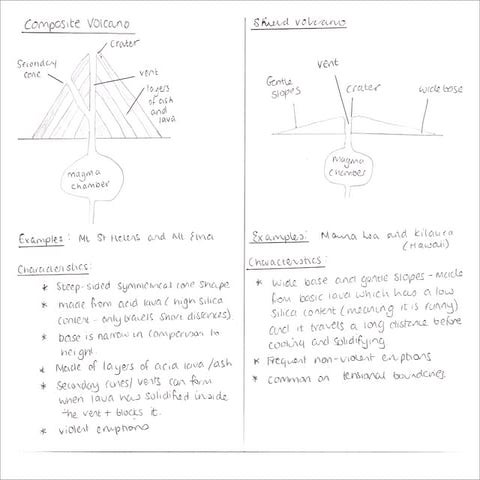 Composite Volcano
crater
Secondary
cone
vent
layers
of ash
and
lava
magma
chamber
Examples: Mt St Helens and Mt Etna
Characteristics:
* Steep-sided symmetrical cone shape
* made from acid lava (high silica
content - only travels short distances)
* base is narrow in comparison to
height.
* Made of layers of acid lava/ash
* Secondary cones/vents can form
when lava has solidified inside
the vent + blocks it.
* violent eruptions
Shield volcano
vent
Gentle
slopes
crater
wide base
magma
chamber
Examples: Mauna Lea and Kilauea
(Hawaii)
Characteristics:
* Wide base and gentle slopes - Made
from basic lava which has a low
silica content (meaning it is runny)
and it travels a long distance before
cooling and solidifying
* Frequent non-violent eruptions
* Common on tensional boundaries.